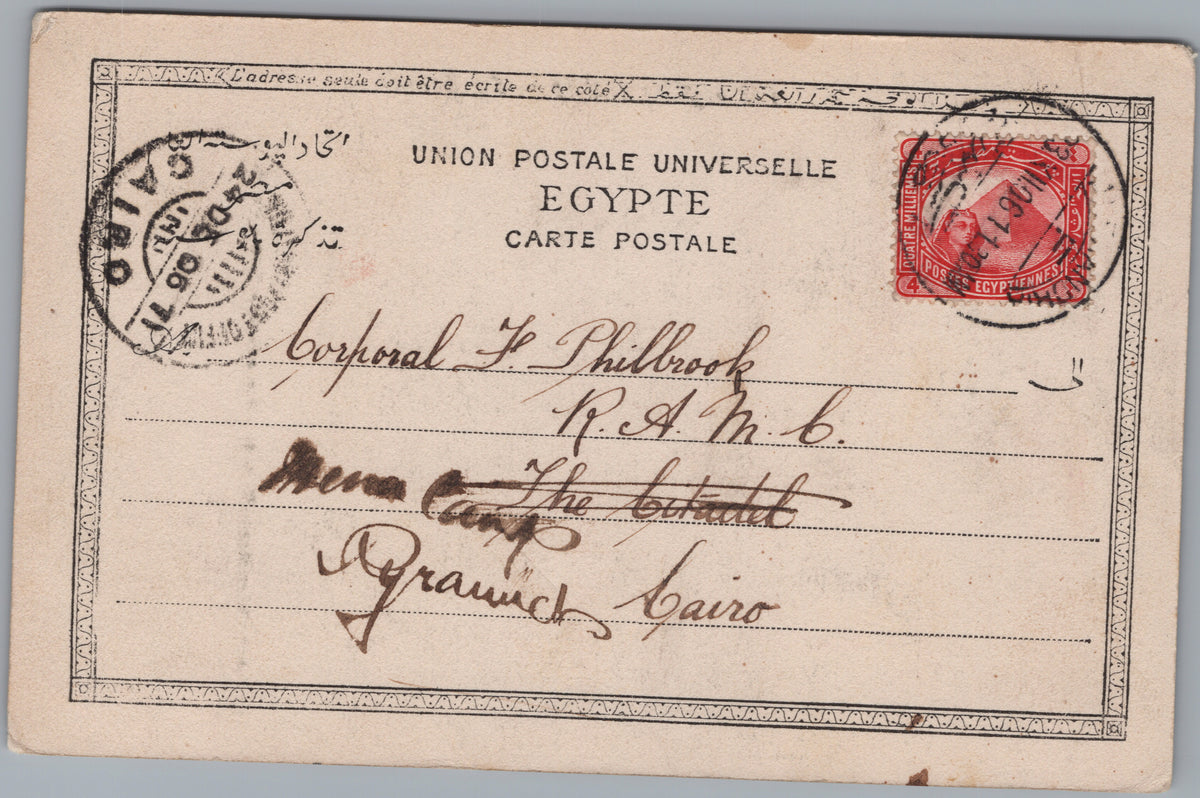 L'adresse seule doit être écrite de ce côté
اتحاد البوسته
UNION POSTALE UNIVERSELLE
EGYPTE
تذكرة
CARTE POSTALE
QUATRE MILLIEMES
POSTES EGYPTIENNES
4
CAIRO
24 DE 06
Corporal F. Philbrook
R. A. M. C.
Mena Camp
The Citadel
Pyramids Cairo